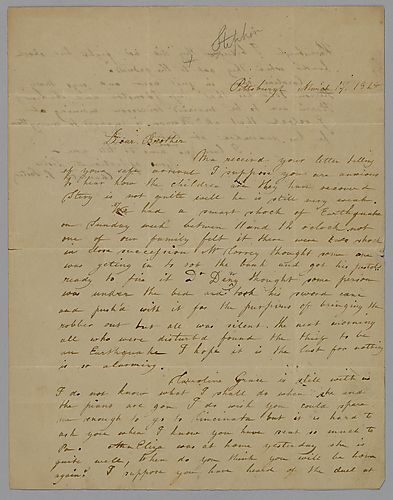 Stephen
Pittsburgh March 17, 182
Dear Brother
Ma receivd your letter telling
of your safe arrival I suppose you are anxious
to hear how the children are they have recoverd
Story is not quite well he is still very weak.
We had a smart shock of Earthquake
on Sunday week between 11 and 12 oclock not
one of our family felt it there were two shock
in close succession! Mr Correy thought some one
was geting in to rob the bank and got his pistols
ready to fire it Dr Deny thought some person
was under the bed and took his sword cane
and push'd with it for the purpose of bringing the
robber out but all was silent. the next morning
all who were disturb'd found the thing to be
an Earthquake I hope it is the last for nothing
is so alarming.
Caroline Grace is still with us
I do not know what I shall do when she and
the piano are gon I do wish you could spare
me enough to go to Cincinata but it is hard to
ask you when I know you have sent so much to
Pa. Ann Eliza was at home yesterday she is
quite well, when do you think you will be home
again? I suppose you have heard of the duel at